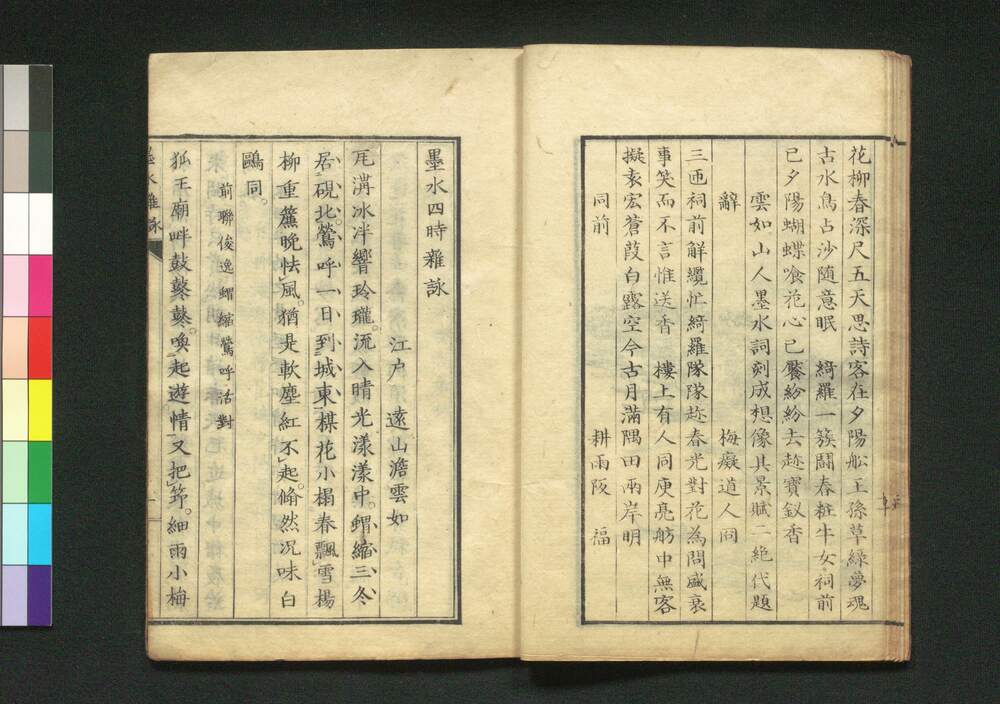 花柳春深尺五天思詩客在夕陽舩王孫草綠夢魂
古水鳥占沙隨意眠　綺羅一簇鬪春粧牛女祠前
已夕陽蝴蝶喰花心已饜紛紛去趂寶釵香
雲如山人墨水詞刻成想像其景賦二絕代題
辭　梅癡道人同
三匝祠前解纜忙綺羅隊隊趂春光對花為問盛衰
事笑而不言惟送香　樓上有人同庾亮舫中無客
擬袁宏蒼葭白露空今古月滿隅田兩岸明
同前　耕雨阪　福
墨水四時雜詠
江户　遠山澹雲如
瓦溝冰泮響玲瓏。流入晴光漾漾中。蝟縮三冬
居硯北。鶯呼一日到城東。棋花小榻春飄雪。楊
柳重簾晚怯風。猶是軟塵紅不起。翛然況味白
鷗同。
前聯俊逸蝟縮鶯呼活對
狐王廟畔鼓鼕鼕。喚起遊情又把筇。細雨小梅
墨水雜詠
一